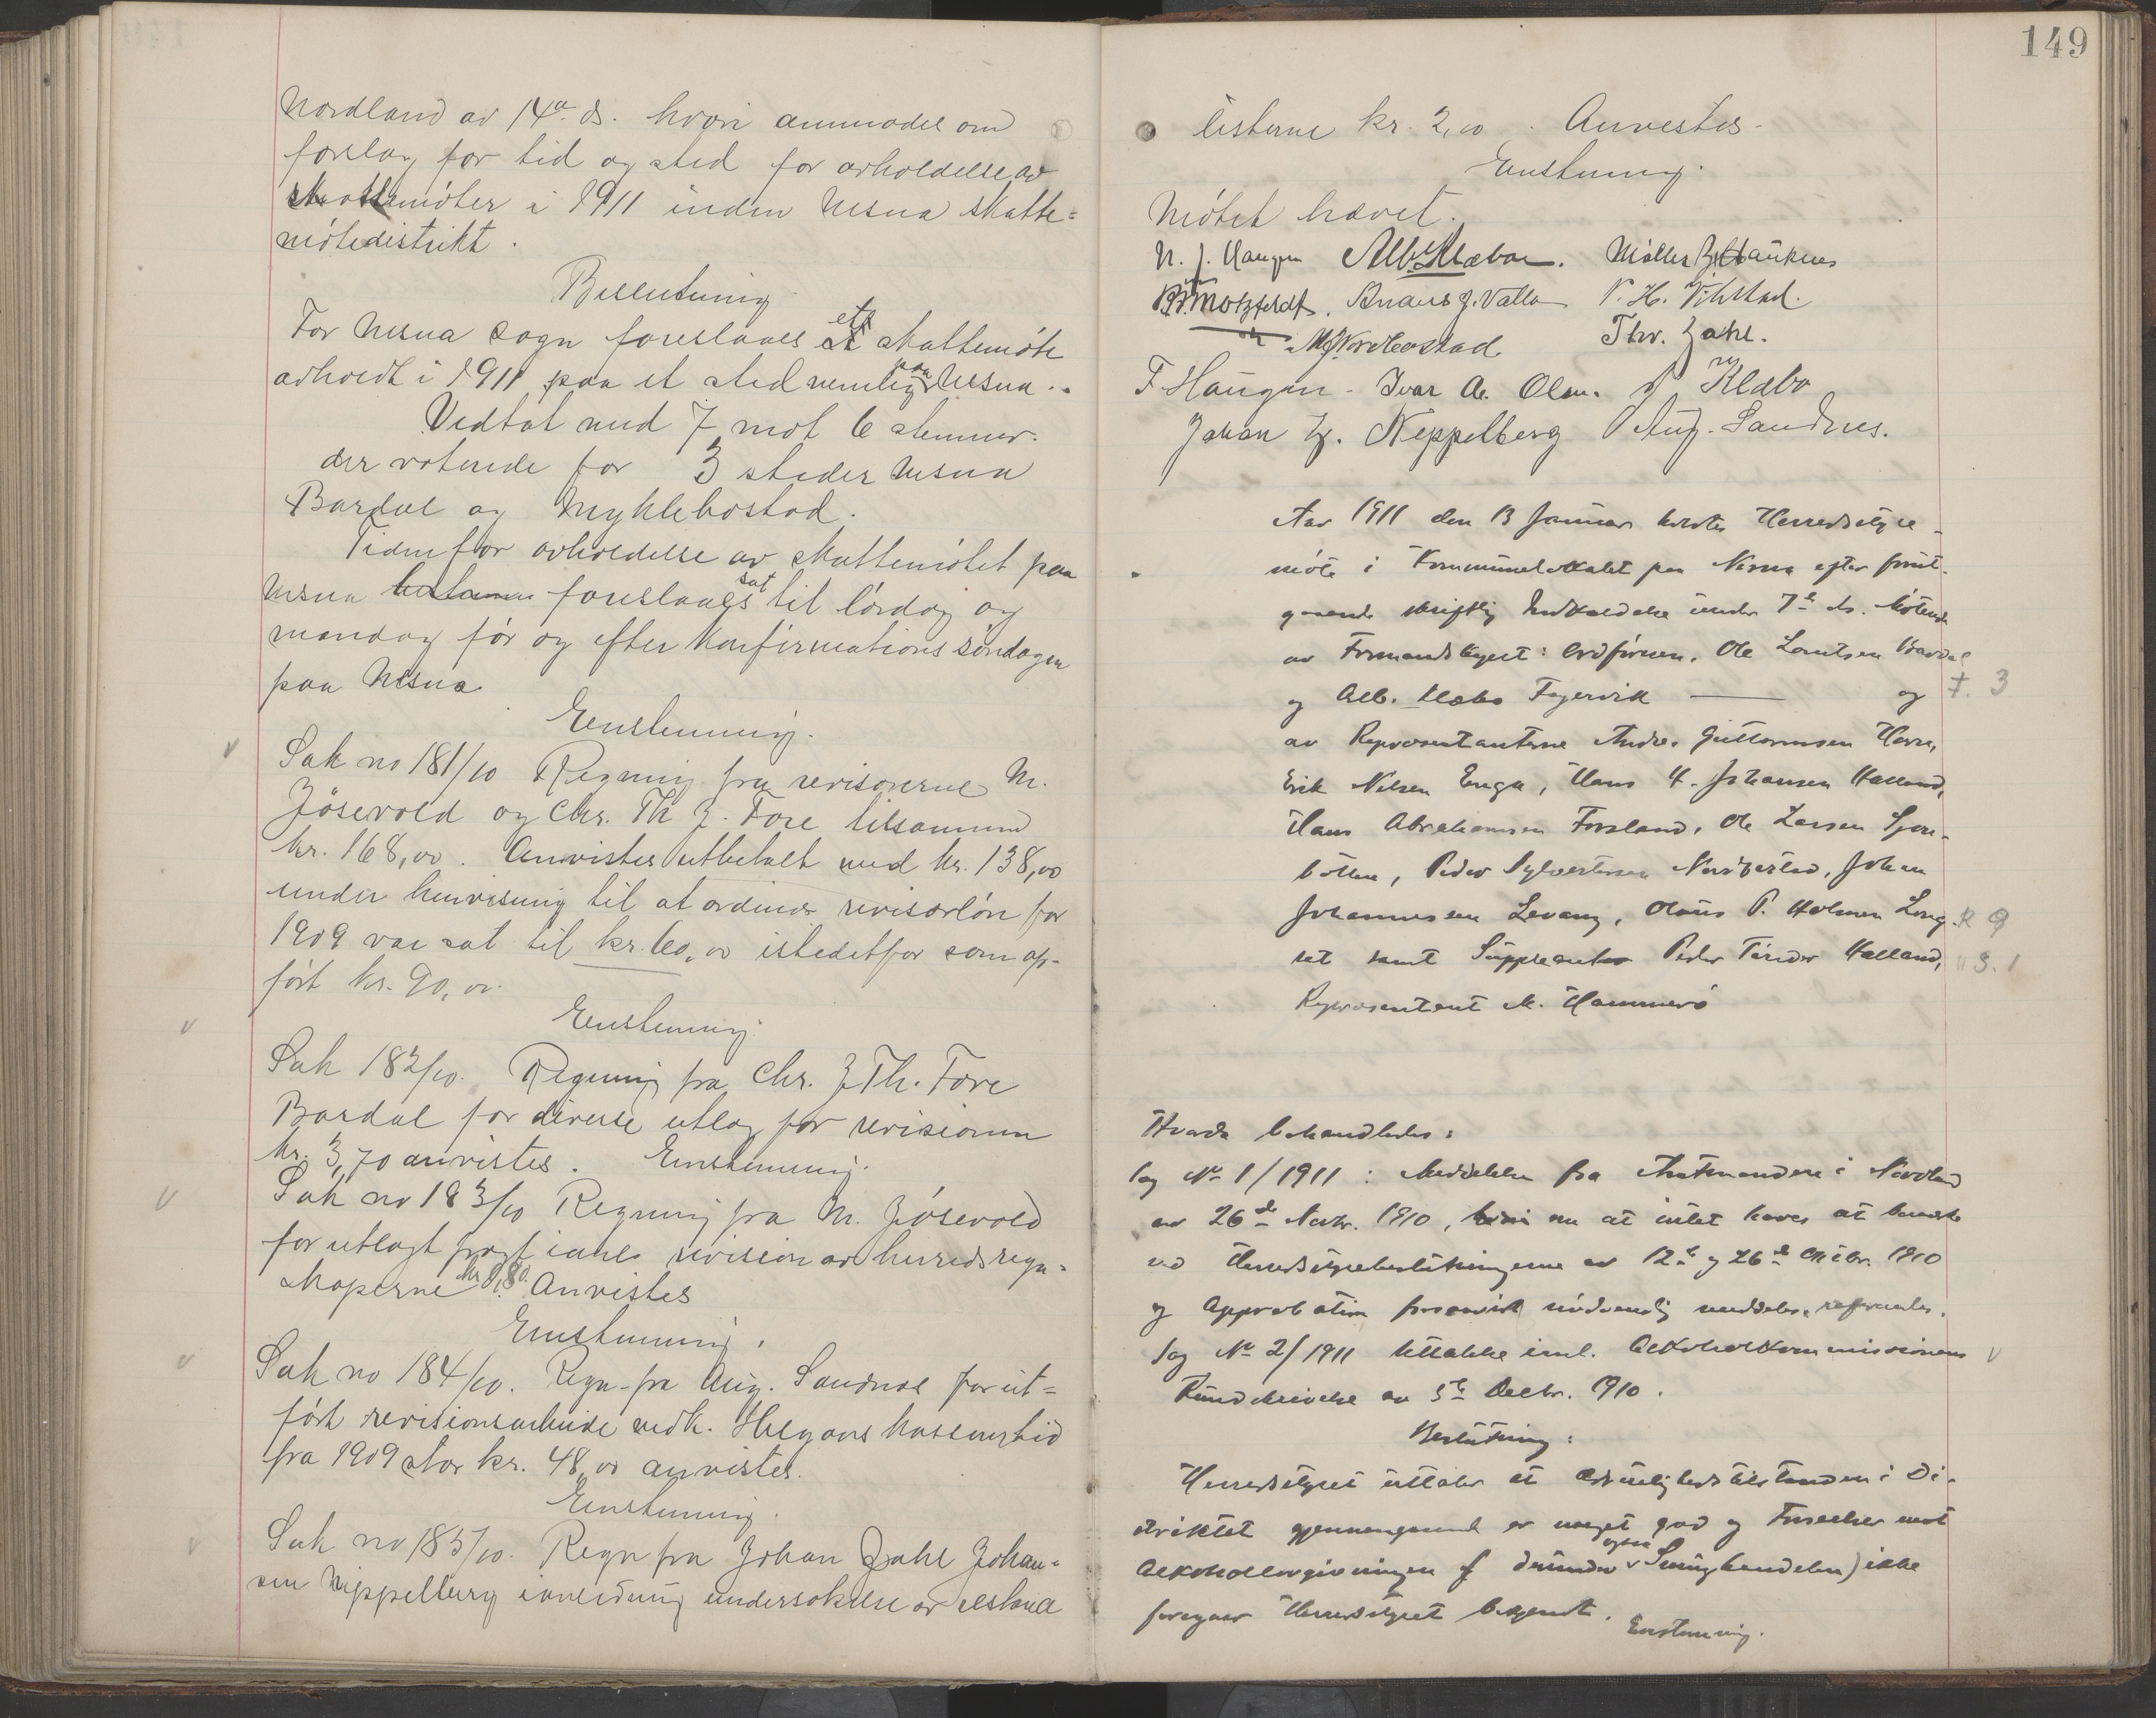 Nordland av 14de ds. hvori anmodes om
forslag for tid og sted for avholdelse av
skattemöter i 1911 inden Nesna skatte=
mötedistrikt.
Beslutning
For Nesna sogn foreslaaes ett skattemöte
avholdt i 1911 paa et sted nemlig paa Nesna.
Vedtat med 7 mot 6 stemmer.
der voterede for 3 steder Nesna
Bardal og Myklebostad.
Tiden for avholdelse av skattemötet paa
Nesna foreslaaes sat til lördag og
mandag för og efter Konfirmationssöndagen
paa Nesna
Enstemmig.
Sak no 181/10 Regning fra revisorerne M.
Jösevold og Chr. Th Z. Fore tilsammen
kr. 168,00. Anvistes utbetalt med kr. 138,00
under henvisning til at ordinær revisorlön for
1909 var sat til kr. 60,00 istedetfor som op-
fört kr. 90,00.
Enstemmig.
Sak 182/10. Regning fra Chr. Z Th. Fore
Bardal for diverse utlæg for revisionen
kr. 3,70 anvistes. Enstemmig.
Sak no 183/10 Regning fra M. Jösevold
for utlagt fragt ianl. revision av herredsregn=
skaperne kr 0,80. Anvistes
Enstemmig.
Sak no 184/10. Regn. fra Aug. Sandnes for ut=
fört revisionsarbeide vedk. Helgaas kassenstid
fra 1909 stor kr. 48,00 anvistes.
Enstemmig.
Sak no 185/10. Regn fra Johan Zahl Johan=
sen Neppelberg ianledning undersökelse av
149
listerne kr. 2,00. Anvistes.
Enstemmig.
Mötet hævet.
N. J. Haugen Alb Klæboe. Möller Z Hauknes
Motzfeldt. Anders J. Valla P. H. Vikstad.
M Nordbostad Thv. Zahl.
F Haugen Ivar A. Olsen. Klæbo
Johan Z. Neppelberg Aug. Sandnes.
Aar 1911 den 13 Januar holdtes Herredsstyre-
möte i Kommunelokalet paa Nesna efter forut-
gaaende skriftlig Indkaldelse under 7de ds. Mötende
av Formandskapet: Ordföreren, Ole Lorntsen Bardal
og Alb. Klæbo Fagervik og F. 3
av Repræsentanterne Andr. Guttormsen Herra,
Erik Nilsen Enga, Hans H. Johansen Halland,
Hans Abrahamsen Forsland, Ole Larsen Sjon-
botten, Peder Sylvestersen Nordbostad, Johan
Johannessen Levang, Olaus P. Holmen Lang- R 9
set samt Suppleanten Peder Halland, S. 1
Repræsentant M. Hammerö
Hvorda behandledes:
Sag No 1/1911: Meddelelse fra Amtmanden i Nordland
av 26de Novbr. 1910, om at intet haves at bemerke
ved Herredsstyrebeslutningerne av 12te og 26de Oktbr. 1910
og Approbation forsaavidt nödvendig meddeles, refereredes.
Sag No 2/1911 Uttalelse innl. Alkoholkommissionens
Rundskrivelse av 5te Decbr. 1910.
Beslutning:
Herredsstyret uttaler at Ædruelighedstilstanden i Di-
striktet gjennemgaaende er meget god og Forseelser mot
Alkohollovgivningen (derunder ogsaa Smughandelen) ikke
foregaar Herredsstyret bekjendt.
Enstemmig.